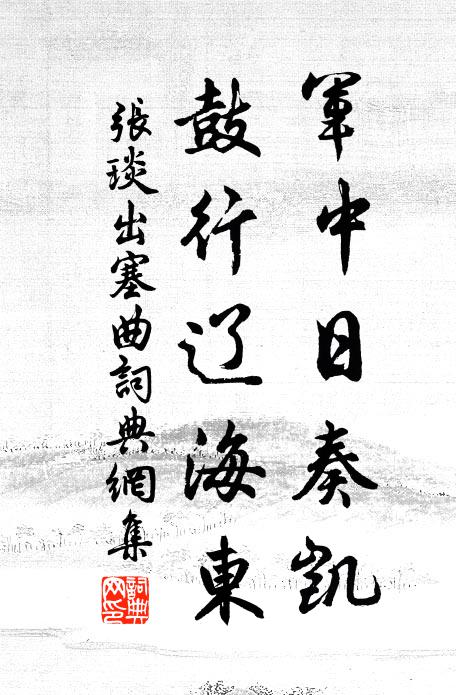 軍中日奏凱
鼓行辽海東
張琰出塞曲詞典網集
詞典網印